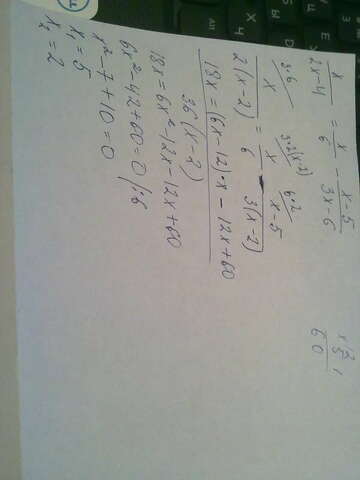 x/(2x-4) = x/6 - (x-5)/(3x-6)
3·6 3·2(x-2) 6·2
x/(2(x-2)) = x/6 - (x-5)/(3(x-2))
18x = (6x-12)·x - 12x+60
36(x-2)
18x = 6x²-12x-12x+60
6x²-42+60=0 /:6
x²-7+10=0
x₁=5
x₂=2
x 12
5
60